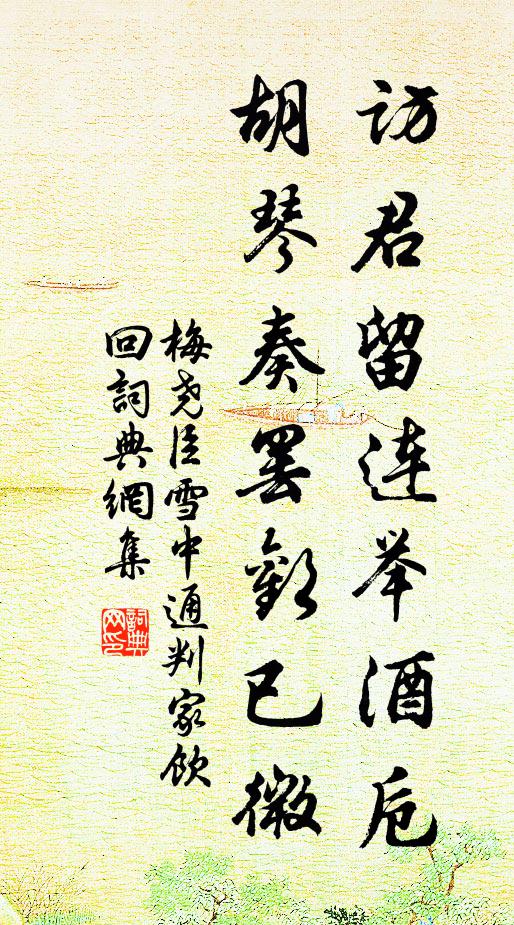 访君留连举酒卮
胡琴奏罢歡已微
梅尧臣雪中通判家饮
回詞典網集
詞典网印